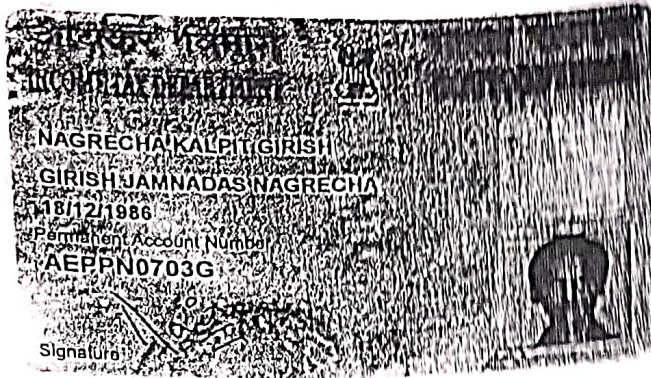 आयकर विभाग
INCOME TAX DEPARTMENT
NAGRECHA KALPIT GIRISH
GIRISH JAMNADAS NAGRECHA
18/12/1986
Permanent Account Number
AEPPN0703G
Signature